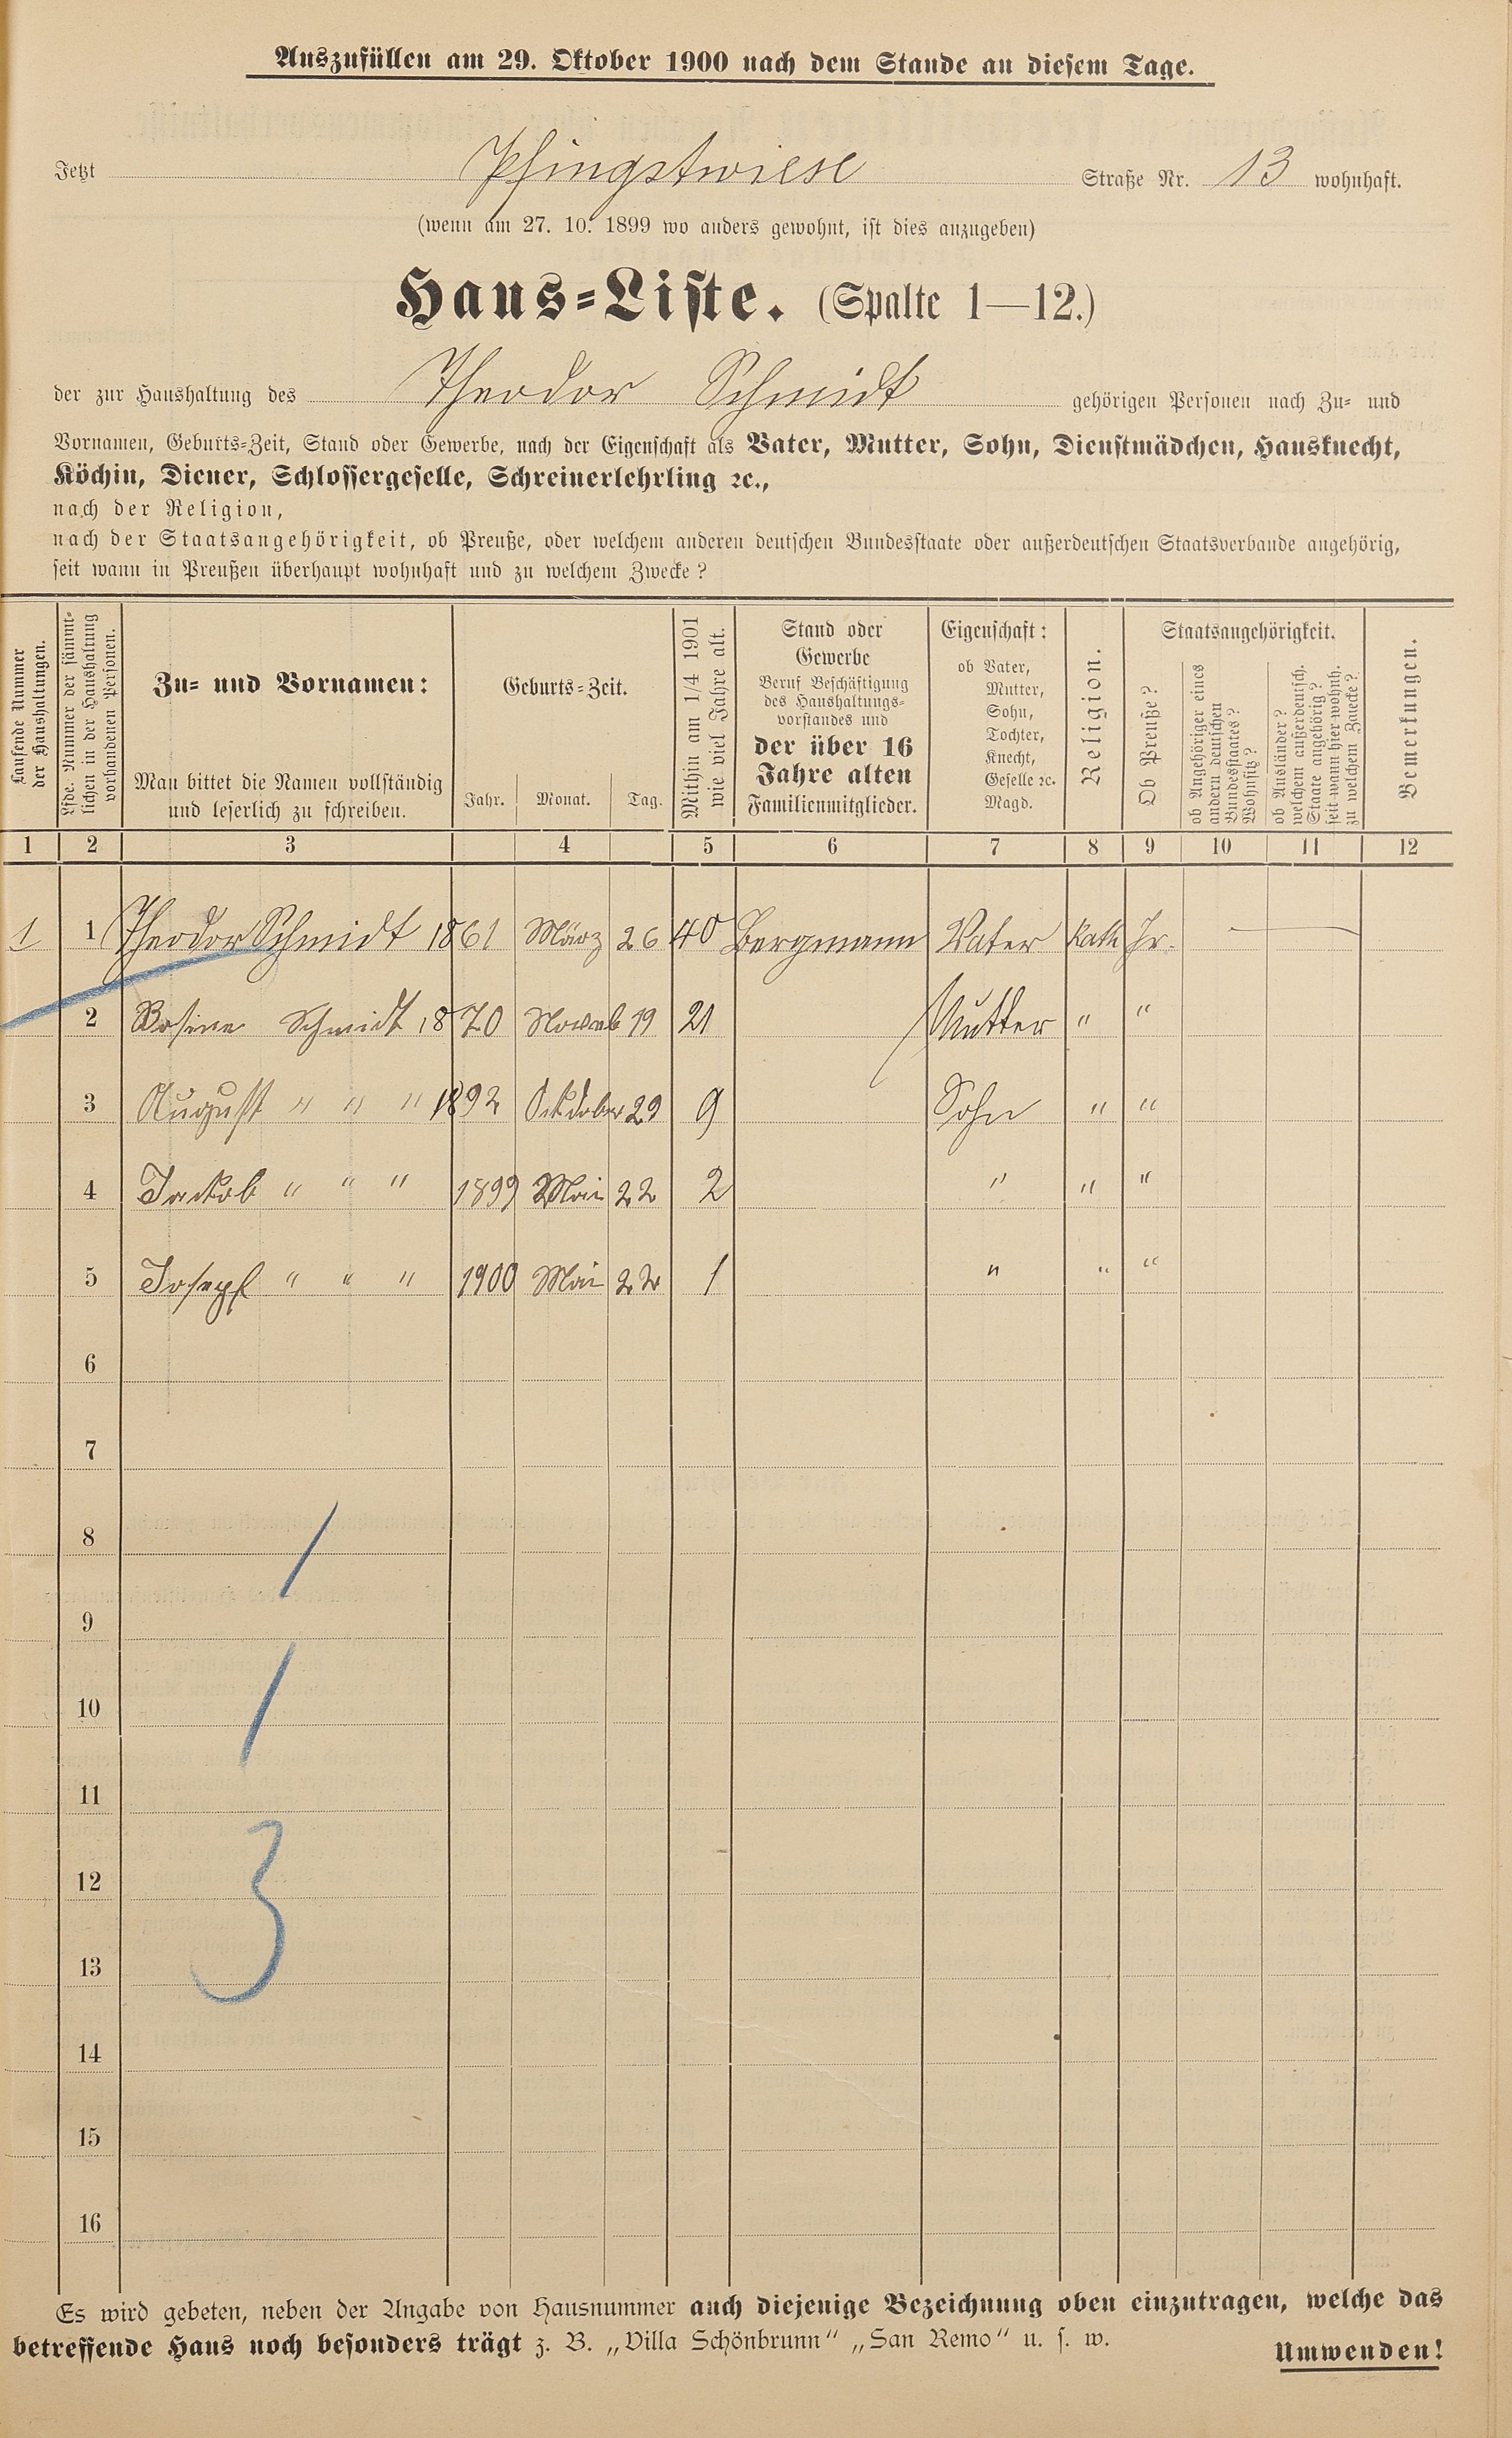 Auszufüllen am 29. Oktober 1900 nach dem Stande an diesem Tage.
Jetzt Pfingstwiese Straße Nr. 13 wohnhaft.
(wenn am 27. 10. 1899 wo anders gewohnt, ist dies anzugeben)
Haus-Liste. (Spalte 1—12.)
der zur Haushaltung des Theodor Schmidt gehörigen Personen nach Zu- und
Vornamen, Geburts-Zeit, Stand oder Gewerbe, nach der Eigenschaft als Vater, Mutter, Sohn, Dienstmädchen, Hausknecht,
Köchin, Diener, Schlossergeselle, Schreinerlehrling ꝛc.,
nach der Religion,
nach der Staatsangehörigkeit, ob Preuße, oder welchem anderen deutschen Bundesstaate oder außerdeutschen Staatsverbande angehörig,
seit wann in Preußen überhaupt wohnhaft und zu welchem Zwecke?
Laufende Nummer
der Haushaltungen.
Lfde. Nummer der sämmt-
lichen in der Haushaltung
vorhandenen Personen.
Zu- und Vornamen:
Man bittet die Namen vollständig
und leserlich zu schreiben.
Geburts-Zeit.
Jahr. Monat. Tag.
Mithin am 1/4 1901
wie viel Jahre alt.
Stand oder
Gewerbe
Beruf Beschäftigung
des Haushaltungs-
vorstandes und
der über 16
Jahre alten
Familienmitglieder.
Eigenschaft:
ob Vater,
Mutter,
Sohn,
Tochter,
Knecht,
Geselle ꝛc.
Magd.
Religion.
Staatsangehörigkeit.
Ob Preuße?
ob Angehöriger eines
andern deutschen
Bundesstaates?
Wohnsitz?
ob Ausländer?
welchem außerdeutsch.
Staate angehörig?
seit wann hier wohnh.
zu welchem Zwecke?
Bemerkungen.
1 2 3 4 5 6 7 8 9 10 11 12
1 1 Theodor Schmidt 1861 März 26 40 Bergmann Vater Kath Pr.
2 Rosine Schmidt 1870 Novmb 19 21 Mutter " "
3 August " " " 1892 Ocktober 29 9 Sohn " "
4 Jackob " " " 1899 Mai 22 2 " " "
5 Josepf " " " 1900 Mai 22 1 " " "
6
7
8
9
10
11
12
3
13
14
15
16
Es wird gebeten, neben der Angabe von Hausnummer auch diejenige Bezeichnung oben einzutragen, welche das
betreffende Haus noch besonders trägt z. B. „Villa Schönbrunn“ „San Remo“ u. s. w.
Umwenden!